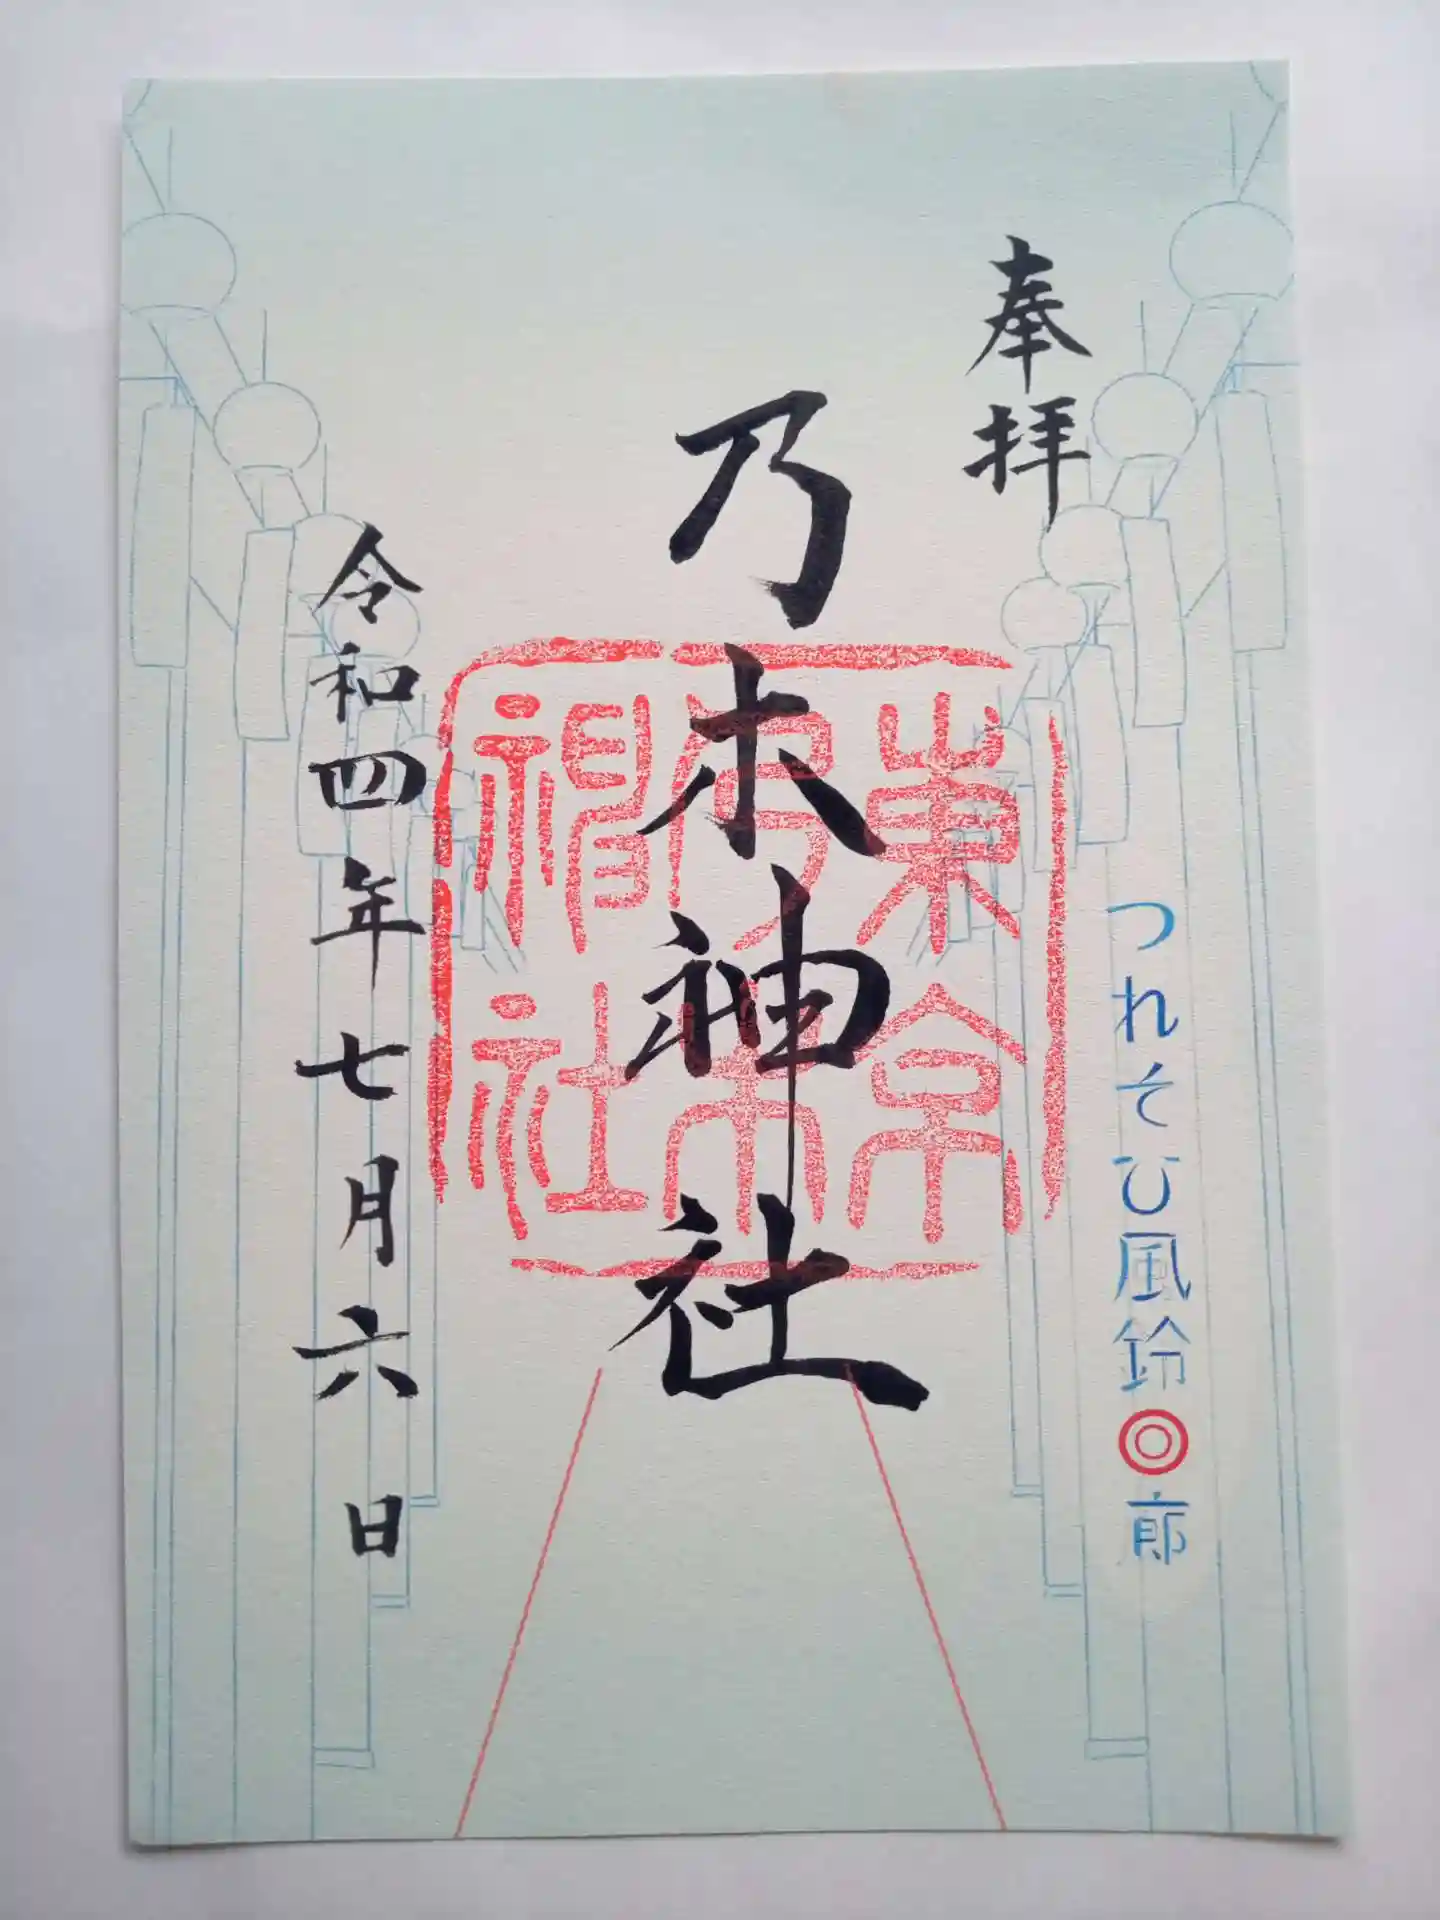 奉拝
つれそひ風鈴回廊
乃木神社
東京
乃木
神社
令和四年七月六日